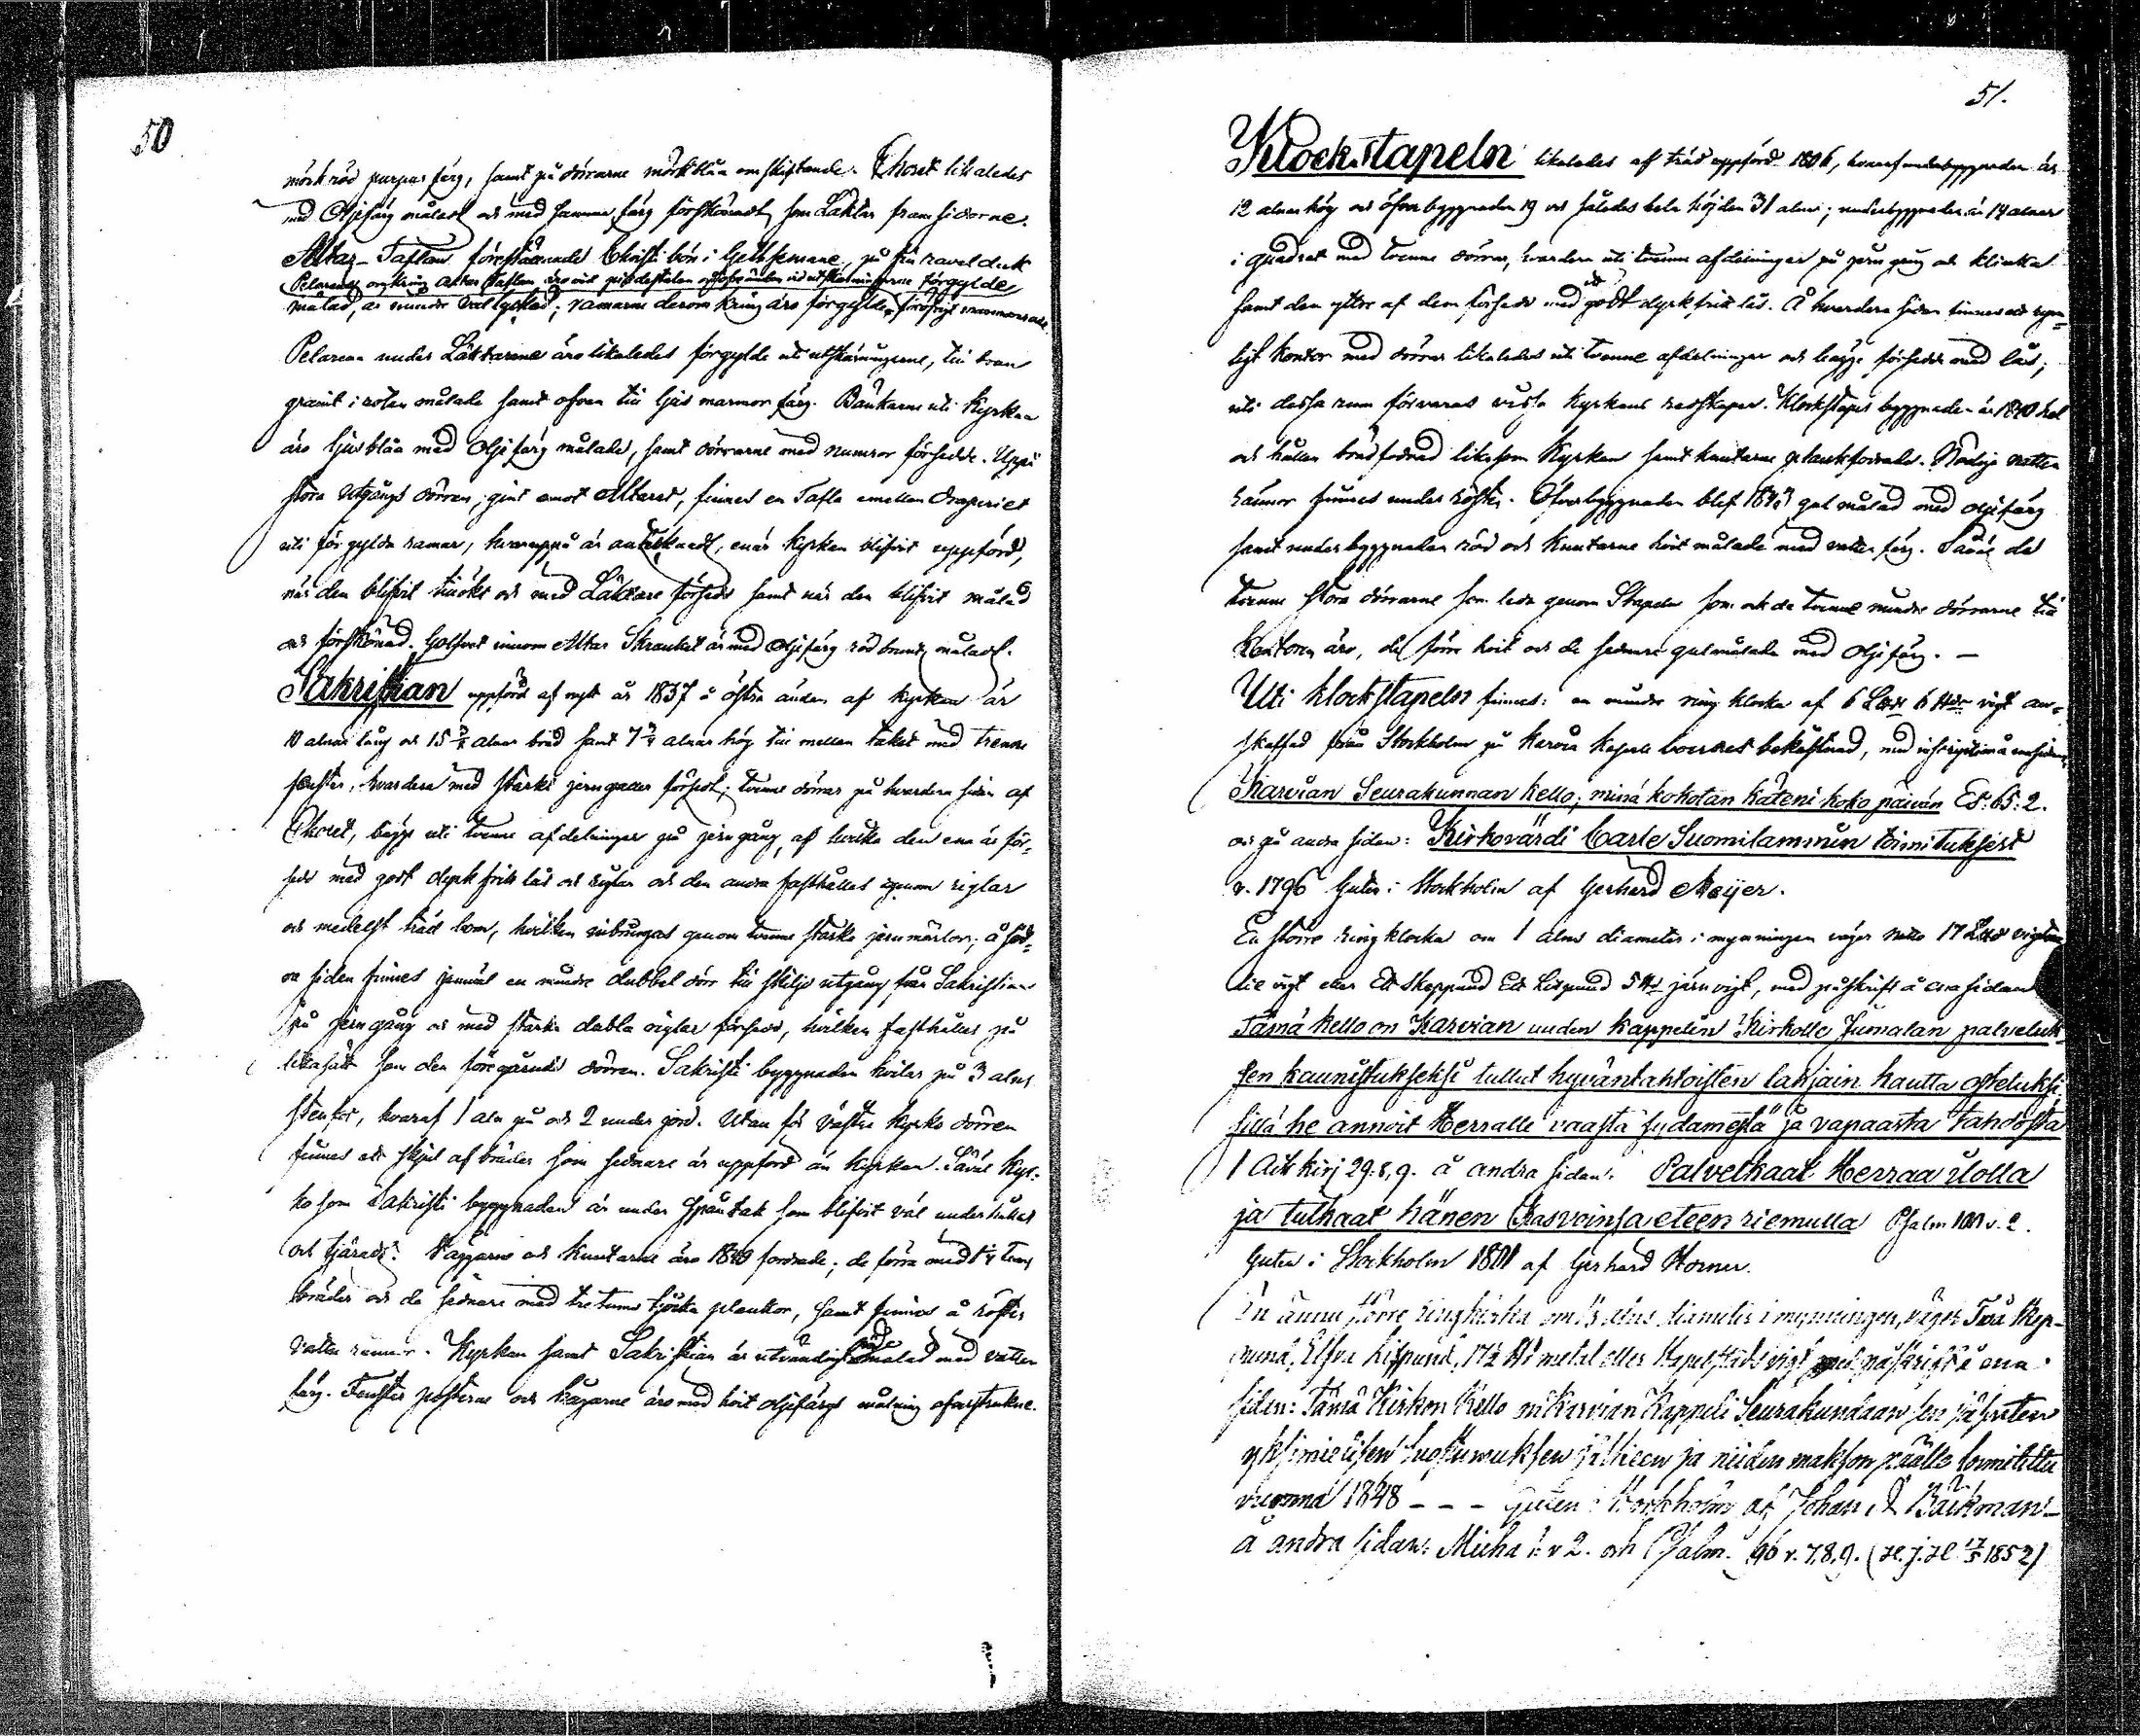 50
mörkröd purpur färg, samt på dörrarne mörkblåa omskiftande. Choret likaledes
med Oljefärg måladt och med samma färg förskönadt, som Läktar framsidorne.
Altar-Taflan föreställande Christi bön i Gethsemane, på fin ravelduk
Pelarene omkring altar Taflan äro vid utskärningarne förgylde
målad, är mindre väl lyckad; ramarne deromkring äro förgylde, för öfrigt marmorerade.
Pelarena under Läktarene äro likaledes förgylde uti utskärningarne, till bran
granit i roten målade samt ofvan till ljus marmor färg. Bänkarne uti Kyrkan
äro ljusblåa med Oljefärg målade, samt dörrarne med numror försedde. Uppå
stora Utgångs dörren, gint emot Altaret, finnes en Tafla emellan draperiet
uti förgylda ramar, hvaruppå är antecknadt, enär Kyrkan blifvit uppförd,
när den blifvit tillökt och med Läktare försedd samt när den blifvit målad
och förskönad. Golfvet innom Altar Skranket är med Oljefärg rödbrunt måladt.
Sakristian uppförd af nytt år 1837 å östra ändan af Kyrkan är
10 alnar lång och 15 alnar bred samt 7 alnar hög till mellan taket med trenne
fenster, hvardera med starka jerngaller försedt; tvenne dörrar på hvardera sidan af
Choret, bägge uti tvenne afdelningar på jerngång, af hvilka den ena är för-
sedd med godt dyrkfritt lås och riglar och den andra fasthålles igenom riglar
och medelst träd bom, hvilken inbringas genom tvenne starka jernmärlor; å söd-
ra sidan finnes jemväl en mindre dubbel dörr till skiljd utgång från Sakristian
på jerngång och med starka dubla riglar försedd, hvilken fasthålles på
lika sätt som den föregående dörren. Sakristi byggnaden hvilar på 3 alns
stenfot, hvaraf 1 aln på och 2 under jord. Utan för västra Kyrko dörren
finnes ett skjul af bräder som sednare är uppförd än Kyrkan. Såväl Kyr-
ko som Sakristi byggnaden är under Spåntak som blifvit väl underhållet
och tjäradt. Väggarne och Knutarne äro 1840 fordrade; de förra med tums
bräder och de sednare med tre tums tjocka plankor, samt finnes å röstes
vatten rännor. Kyrkan samt Sakristian är utvändigt målad med vatten
färg. Fenster posterne och bågarne äro med hvit oljefärgs målning öfverstrukne.
51.
Klockstapeln likaledes af träd uppförd 1806, hvaraf underbyggnaden är
12 alnar hög och öfverbyggnaden 19 och således hela höjden 31 alnar; underbyggnaden är 14 alnar
i quadrat med tvenne dörrar, hvardera uti tvenne afdelningar på jerngång och klinka
samt den yttre af dem försedd med ett godt dyrkfritt lås. Å hvardera sidan finnes ett rym-
ligt Kontor med dörrar likaledes uti tvenne afdelningar och bägge försedde med lås;
uti dessa rum förvaras vissa Kyrkans redskaper. Klockstapels byggnaden är 1840
och hållen brädfodrad likasom Kyrkan samt knutarne plankfodrade. Nödiga vatten
rännor finnes under röstet. Öfverbyggnaden blef gul målad med oljefärg
samt underbyggnaden röd och Knutarne hvit målade med vatten färg. Såväl de
tvenne stora dörrarne som leda genom Stapeln som ock de tvenne mindre dörrarne till
Kontoren äro, de förra hvit och de sednare gulmålade med Oljefärg. —
Uti Klockstapeln finnes: en mindre ring klocka af 6 vigt an-
skaffad från Stockholm på Karvia Kapells boernes bekostnad, med inscription å ena sidan,
Karvian Seurakunnan Kello; minä kokotan käteni koko päivän Es: 65: 2.
och på andra sidan: Kirkovärdi Carle Suomilammin toimituksest
v. 1796 Guten i Stockholm af Gerhard Meijer.
En större ringklocka om 1 alns diameter i mynningen väger netto 17
lie vigt eller Ett Skeppund Ett Lispund 5 järnvigt, med påskrift å ena sidan
Tämä kello on Karvian uuden kappelin Kirkolle Jumalan palveluk-
sen kaunistukseksi tullut hyväntahtoisten lahjain kautta ostetuksi,
sillä he annoit Herralle vaasta sydämestä ja vapaasta tahdosta
1 Aik Kirj 29: 8, 9. å andra sidan: Palvelkaat Herraa ilolla
ja tulkaat hänen Kasvoinsa eteen riemulla Psalm 100 v. 2.
Guten i Stockholm 1801 af Gerhard Horner.
En ännu större ringklocka om alns diameter i mynningen, väger Två Skep-
pund, Elfva Lispund, 17½ metal eller Stapelstads vigt med påskrift å ena
sidan: Tämä Kirkon Kello on Karvian Kappeli Seurakundaan sen jäsenten
yksimielisen suostumuksen jälkeen ja niiden makson päälle toimitettu
vuonna 1848 - - - Guten i Stockholm af Johan A Bäckman –
å andra sidan: Micha v 2. och Psalm. 96 v. 7, 8, 9. (1852)